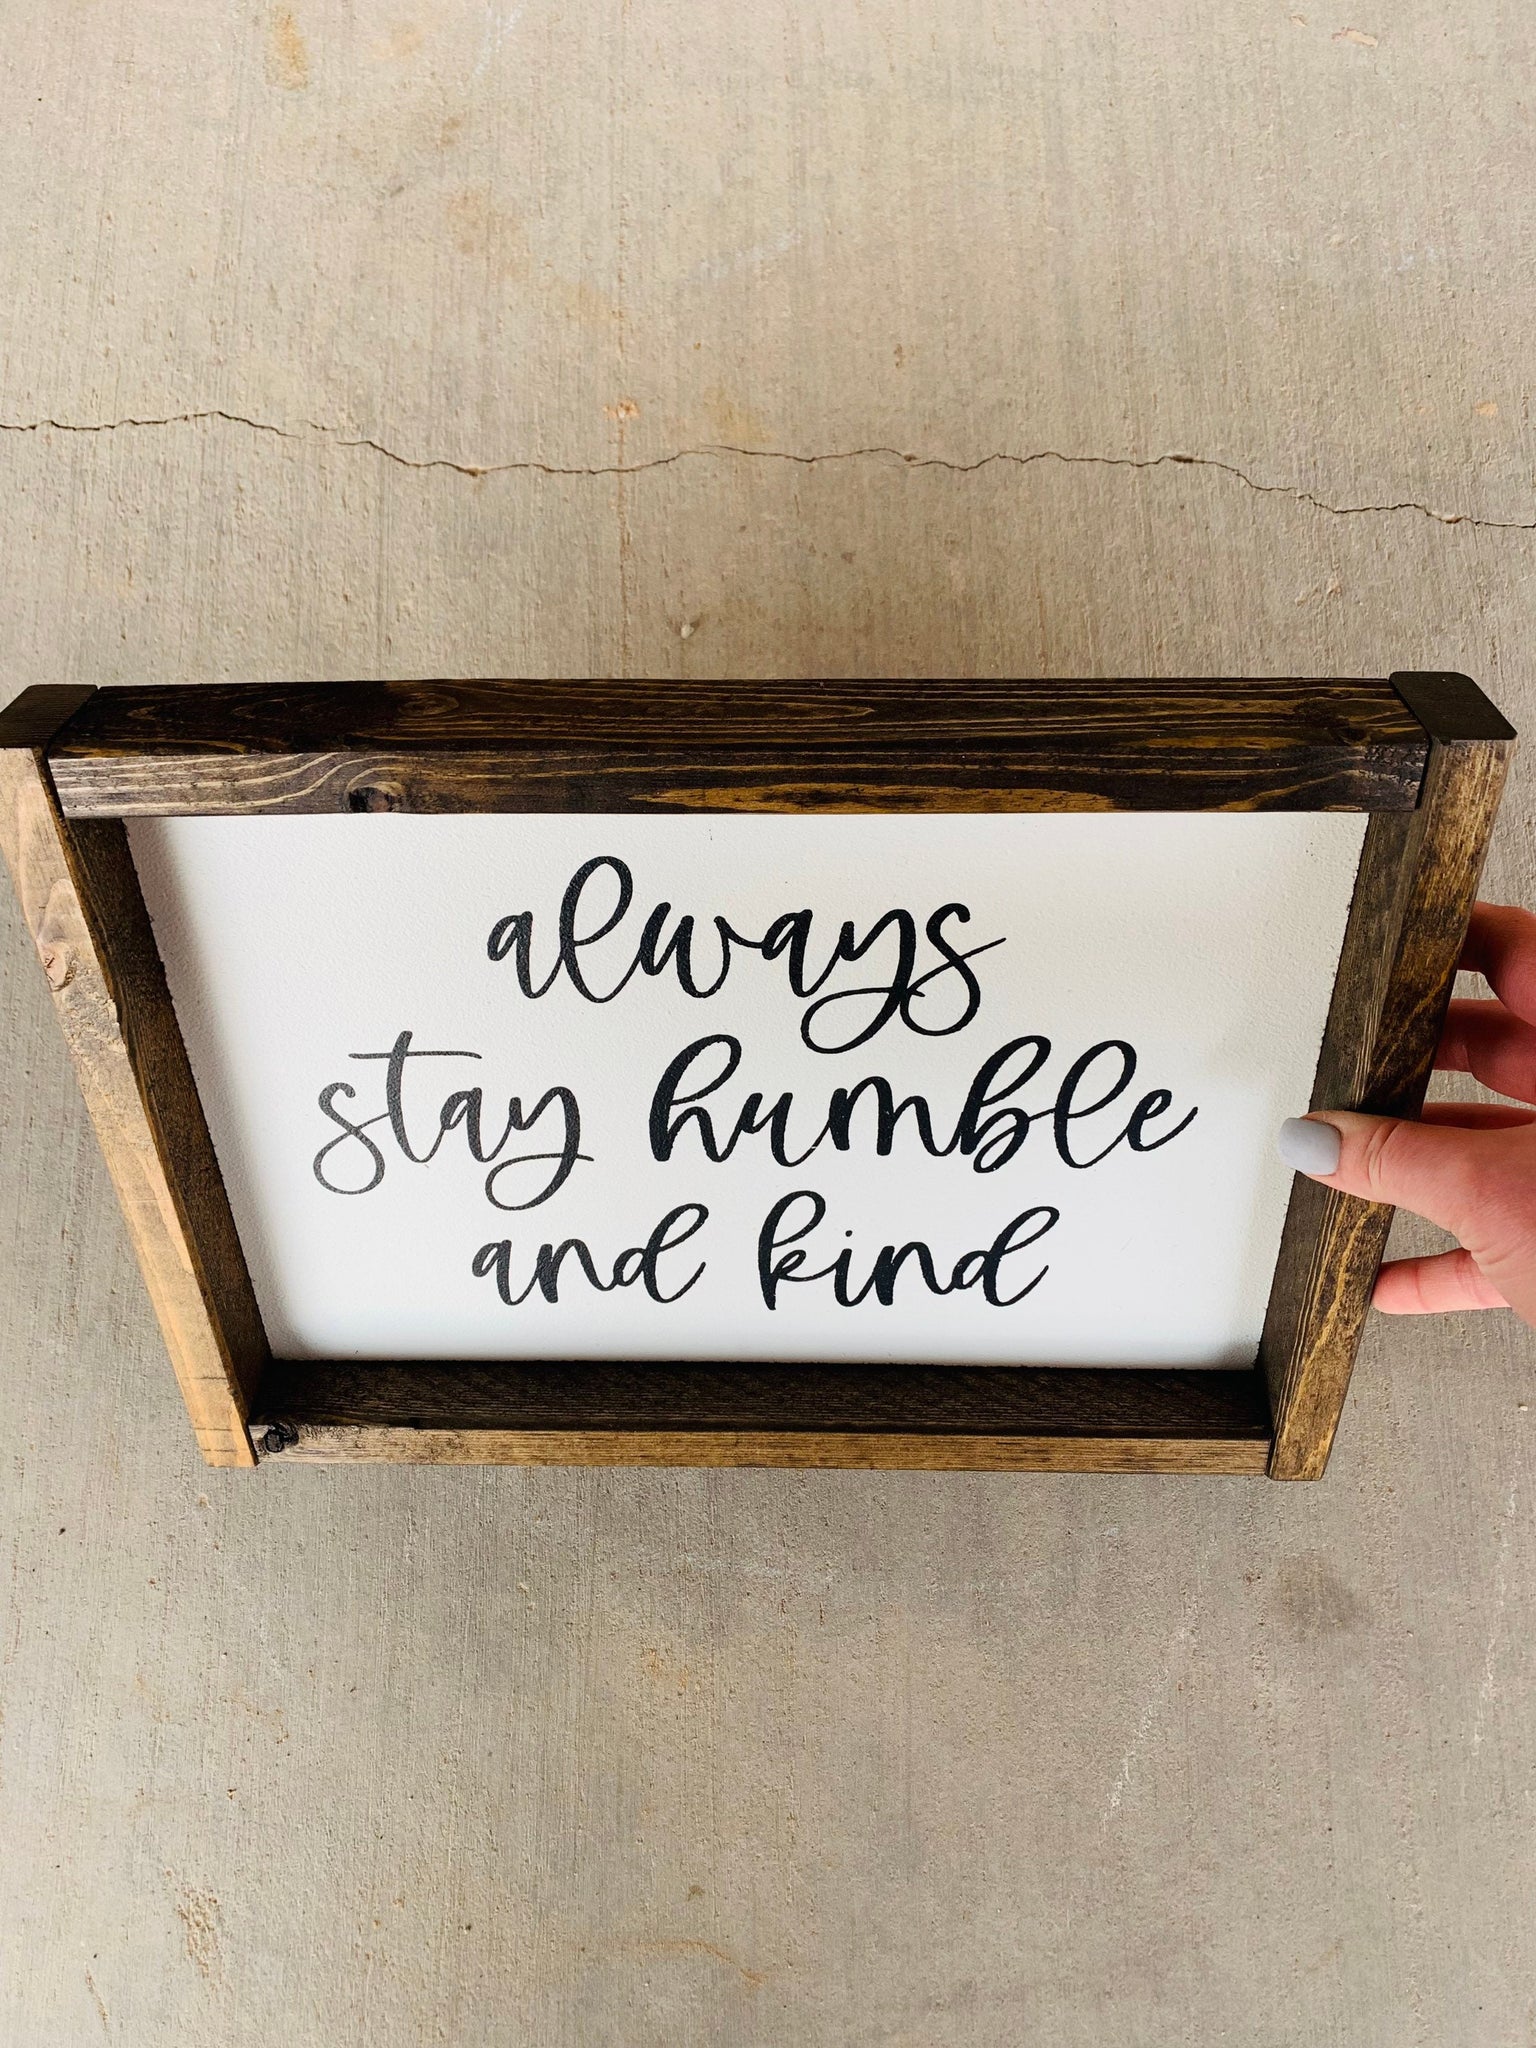 always
stay humble
and kind